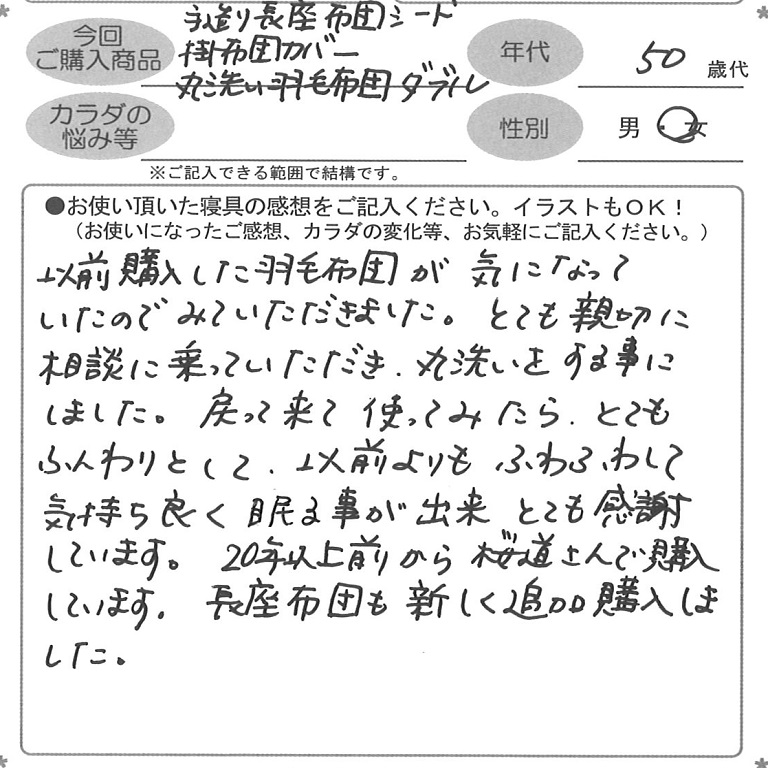 今回
ご購入商品
手造り長座布団シード
掛布団カバー
丸洗い羽毛布団 ダブル
年代
50 歳代
カラダの
悩み等
性別
男・女
※ご記入できる範囲で結構です。
●お使い頂いた寝具の感想をご記入ください。イラストもOK！
（お使いになったご感想、カラダの変化等、お気軽にご記入ください。）
以前購入した羽毛布団が 気になって
いたのでみていただきました。とても親切に
相談に乗っていただき、丸洗いをする事に
しました。戻って来て使ってみたら、とても
ふんわりとして、以前よりもふわふわして
気持ち良く眠る事が出来 とても感謝
しています。20年以上前から桜道さんで購入
しています。長座布団も新しく追加購入しま
した。